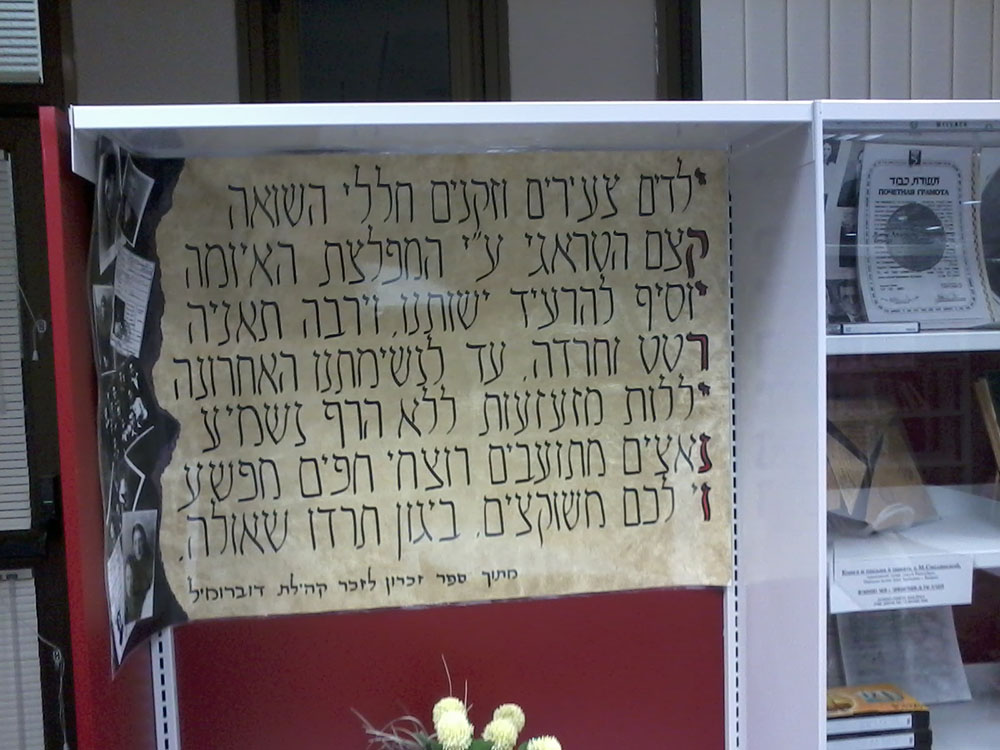 ילדים צעירים וזקנים חללי השואה
קצם הטראגי ע"י המפלצת האיומה
יוסיף להרעיד ישותנו, וירבה תאניה
רטט וחרדה, עד לנשימתנו האחרונה
יללות מזעזעות ללא הרף נשמיע
נאצים מתועבים רוצחי חפים מפשע
וי לכם משוקצים, ביגון תרדו שאולה.
מתוך ספר זכרון לזכר קהילת דוברומיל
תעודת כבוד
ПОЧЕТНАЯ ГРАМОТА